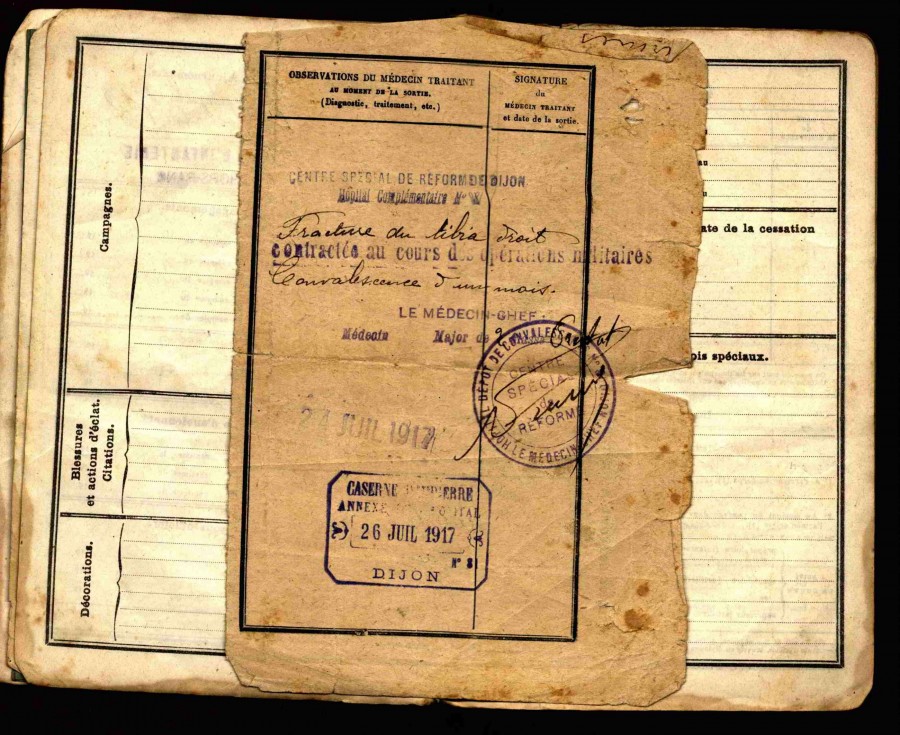 Campagnes.
Blessures
et actions d'éclat.
Citations.
Décorations.
OBSERVATIONS DU MÉDECIN TRAITANT
AU MOMENT DE LA SORTIE.
(Diagnostic, traitement, etc.)
SIGNATURE
du
MÉDECIN TRAITANT
et date de la sortie.
CENTRE SPÉCIAL DE RÉFORME DE DIJON
Hôpital Complémentaire N°
Fracture du tibia droit
contractée au cours des opérations militaires
Convalescence d'un mois.
LE MÉDECIN-CHEF:
Médecin Major de 2
DÉPÔT DE CONVALES
CENTRE
SPÉCIAL
de
RÉFORME
LE MÉDECIN CHEF
24 JUIL 1917
CASERNE
ANNEXE
26 JUIL 1917
N° 8
DIJON
au
u
ate de la cessation
ois spéciaux.